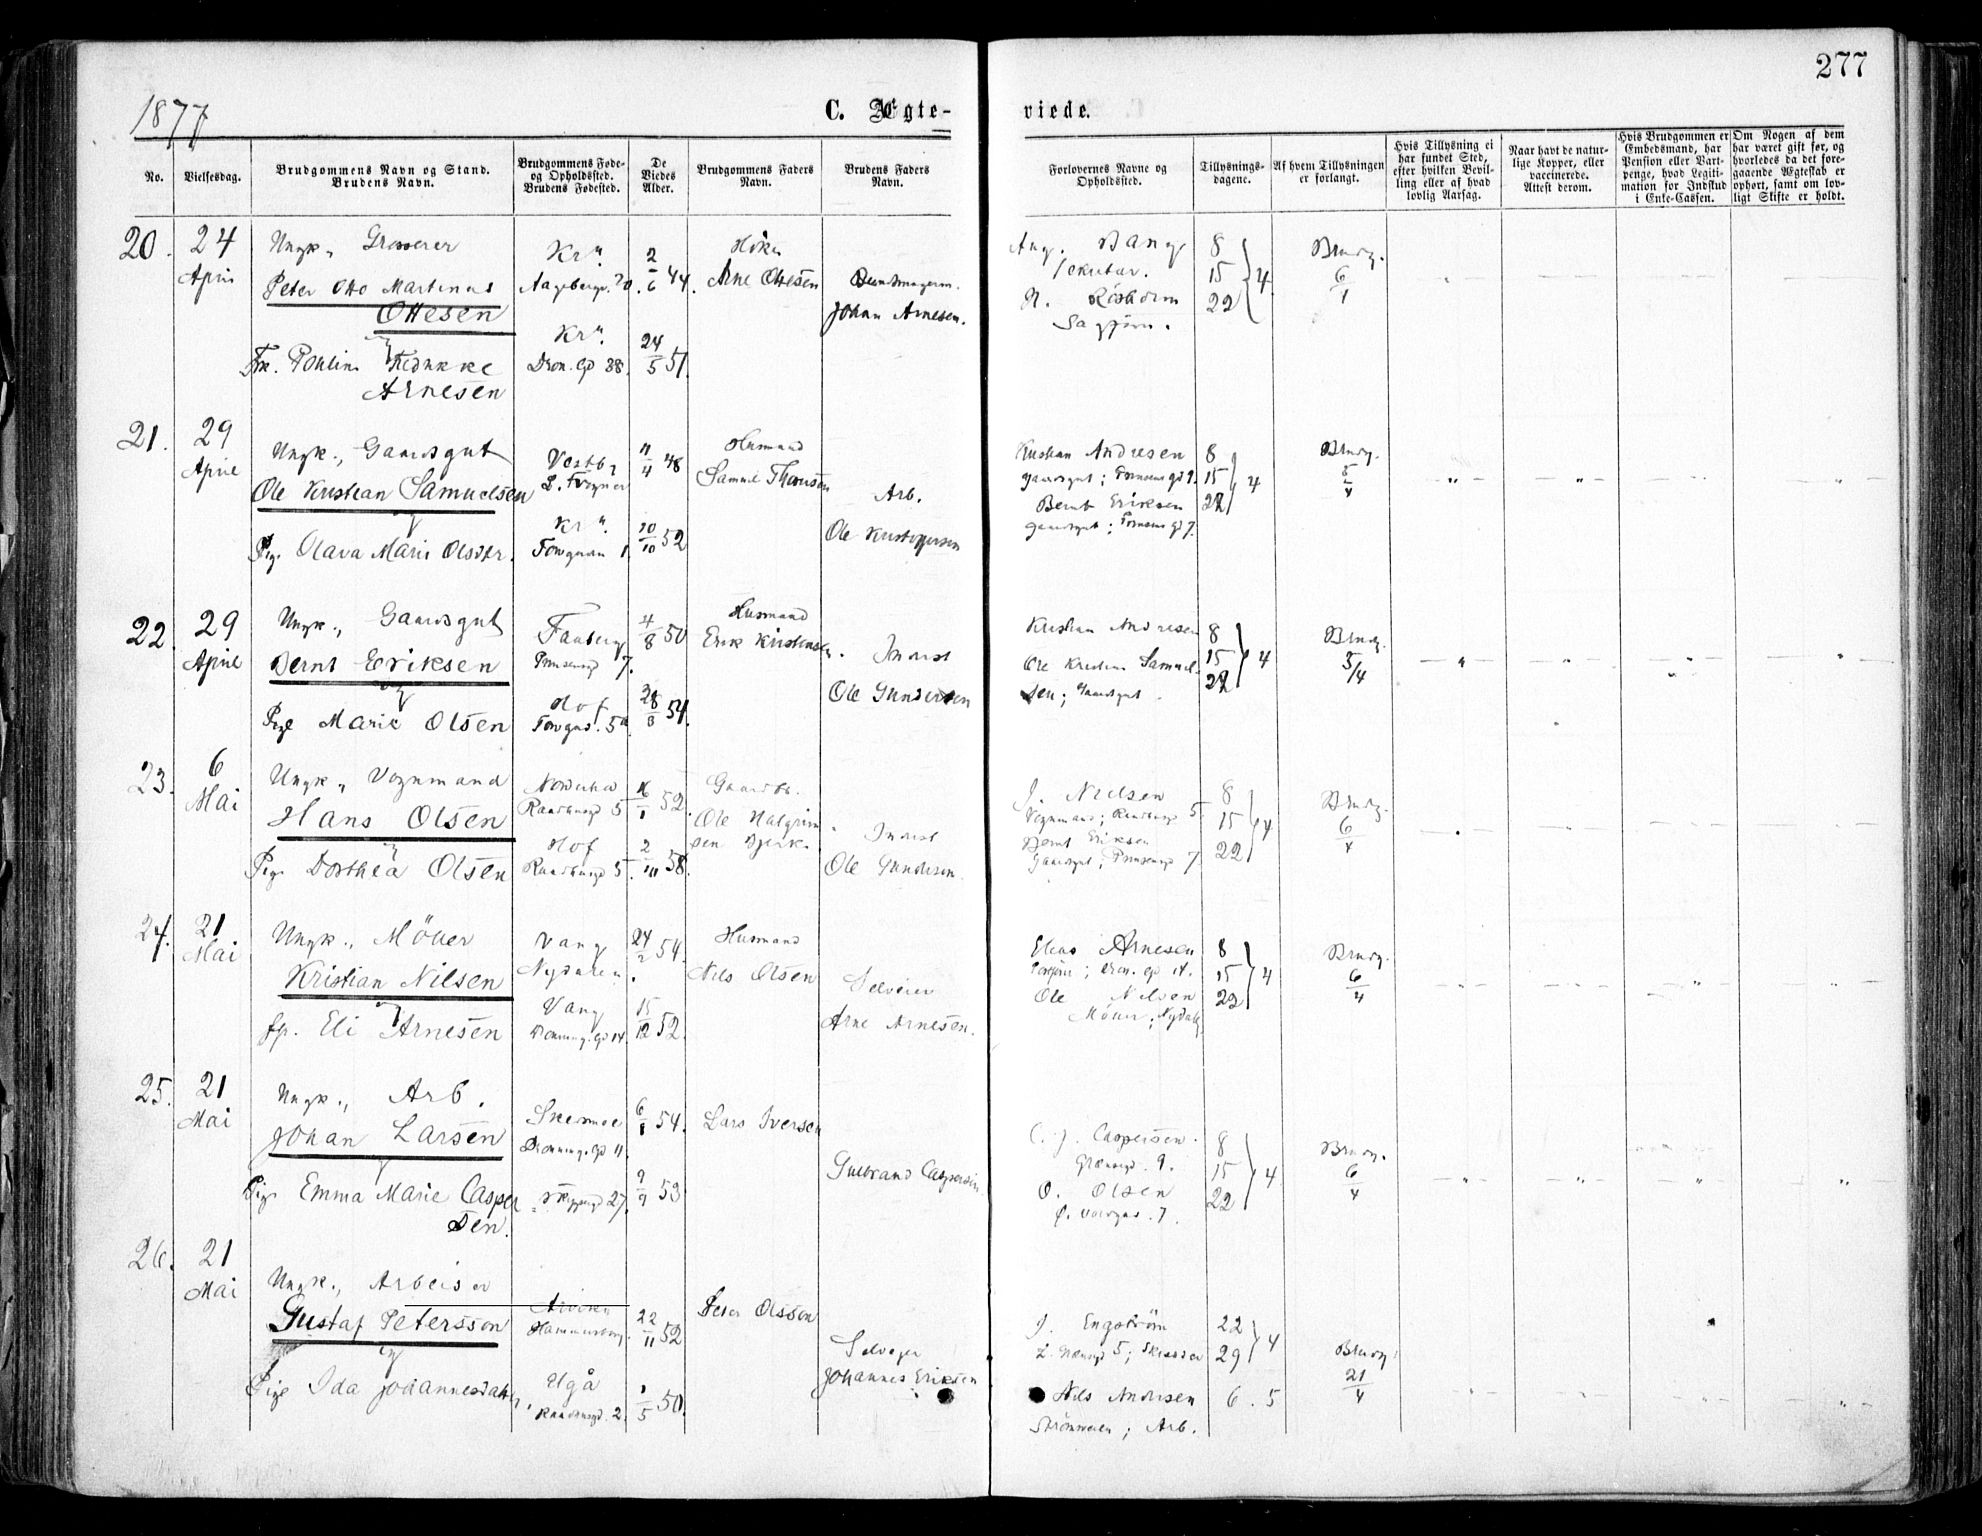 277
1877
C. Ægte-
viede.
No.
Vielsesdag.
Brudgommens Navn og Stand.
Brudens Navn.
Brudgommens Føde-
og Opholdssted.
Brudens Fødested.
De
Viedes
Alder.
Brudgommens Faders
Navn.
Brudens Faders
Navn.
Forlovernes Navne og
Opholdssted.
Tillysnings-
dagene.
Af hvem Tillysningen
er forlangt.
Hvis Tillysning ei
har fundet Sted,
efter hvilken Bevil-
ling eller af hvad
lovlig Aarsag.
Naar havt de natur-
lige Kopper, eller
vaccinerede.
Attest derom.
Hvis Brudgommen er
Embedsmand, har
Pension eller Vart-
penge, hvad Legiti-
mation for Indskud
i Enke-Cassen.
Om Nogen af dem
har været gift før, og
hvorledes da det fore-
gaaende Ægteskab er
ophørt, samt om lov-
ligt Skifte er holdt.
20. 24 April
Ungk., Grosserer
Peter Otto Martinus
Ottesen
og
Frk.
Arnesen
Kra.
Kra.
Dron. Gd 38.
2/6 44.
24/5 51.
Arne Ottesen
Johan Arnesen.
Aug. Bang
N.
8 15 22 } 4
Brudg. 6/4
21. 29 April
Ungk., Gaardsgut
Ole Kristian Samuelsen
og
Pige Olava Marie Olsdtr.
Vestby
Kra.
11/4 48
10/10 52
Husmand
Samuel
Arb.
Ole Kristoffersen
Kristian Andresen
Gaardsgut; Prinsens gd 9.
Bernt Eriksen
Gaardsgut; Prinsens Gd 7.
8 15 22 } 4
Brudg. 5/4
22. 29 April
Ungk., Gaardsgut
Bernt Eriksen
og
Pige Marie Olsen
Faaberg
Prinsensgd 7.
Hof
4/8 50
28/8 54.
Husmand
Erik Kristensen
Inderst
Ole Gundersen
Kristian Andresen
Ole Kristian Samuel-
sen; Gaardsgut.
8 15 22 } 4
Brudg. 5/4
23. 6 Mai
Ungk., Vognmand
Hans Olsen
og
Pige Dorthea Olsen
Raadhusgd 5
Hof
Raadhusgd 5.
16/1 52.
2/10 58.
Gaardbr.
Inderst
Ole Gundersen
J. Nielsen
Vognmand; Raadhusgd 5.
Bernt Eriksen
Gaardsgut; Prinsensgd 7.
8 15 22 } 4
Brudg. 6/4
24. 21 Mai
Ungk., Möller
Kristian Nilsen
og
fp. Eli Arnesen
Vang
Nydalen.
Vang
Dronning. Gd 14.
24/2 54.
15/12 52.
Husmand
Nils Olsen
Selveier
Arne Arnesen.
Elias Arnesen
Ole Nilsen
Möller; Nydalen
8 15 22 } 4
Brudg. 6/4
25. 21 Mai
Ungk., Arb.
Johan Larsen
og
Pige Emma Marie Casper
sen.
Skedsmoe
Dronning. Gd 11.
Skippergd 27.
6/8 54.
9/9 53
Lars Iversen
Gulbrand Caspersen
C. J. Caspersen.
Grænsegd. 9.
O. Olsen
8 15 22 } 4
Brudg. 6/4
26. 21 Mai
Ungk., Arbeider
Gustaf Petersson
og
Pige Ida Johannesdatter,
Arvika
Hammersborg.
Raadhusgd. 2.
22/11 52
1/5 50.
Peter Olsson
Selveier
Johannes Eriksen
J. Engström
L. Grænsegd 5; Skrædder
Nils Andersen
Strömsveien; Arb.
22 29 } 4
6. 5
Brudg. 21/4